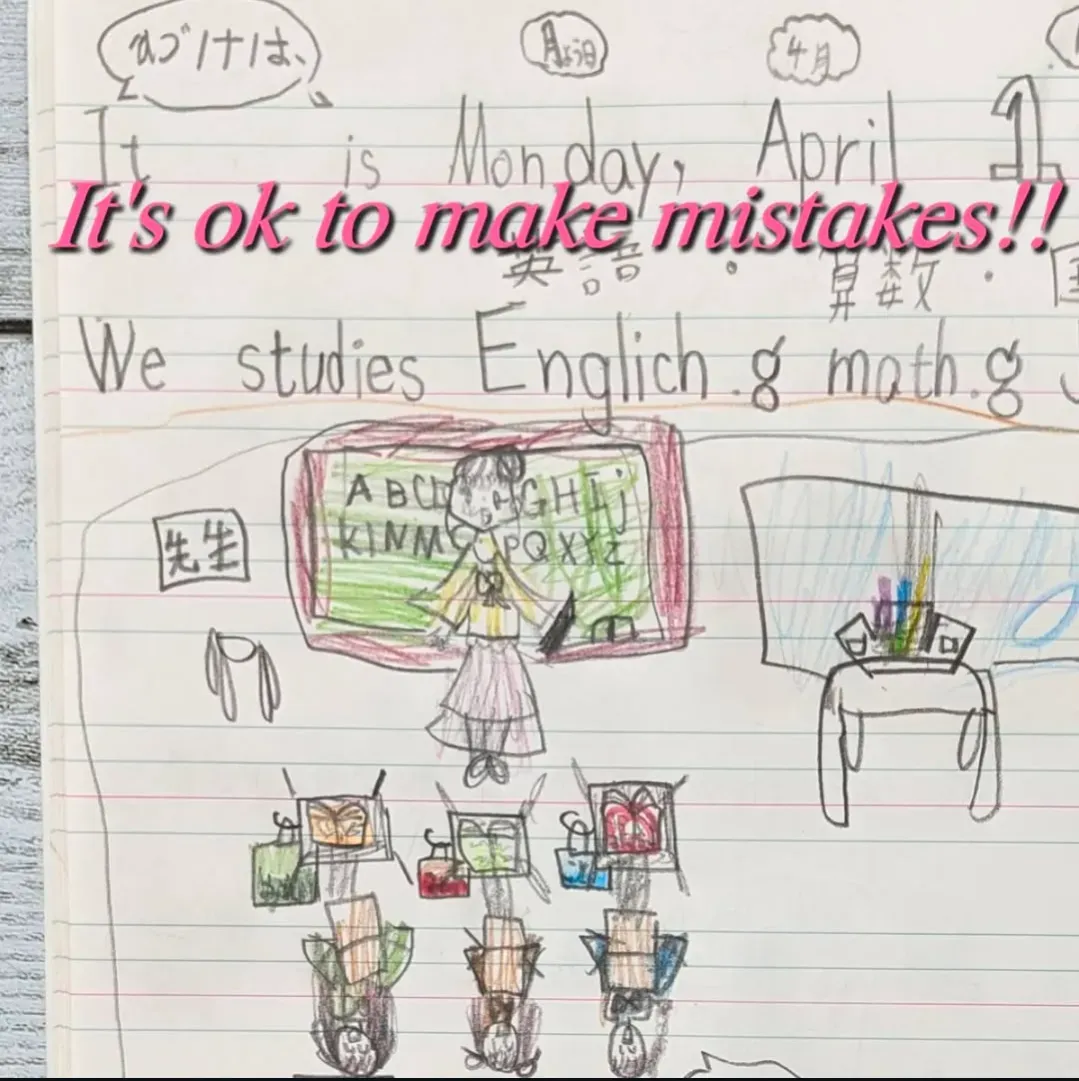 ひづけは、 月よう日 4月
It is Monday, April 1
It's ok to make mistakes!!
英語・算数・
We studies Englich.g moth.g
ABCD HGHIj
先生
KINM PQXYz